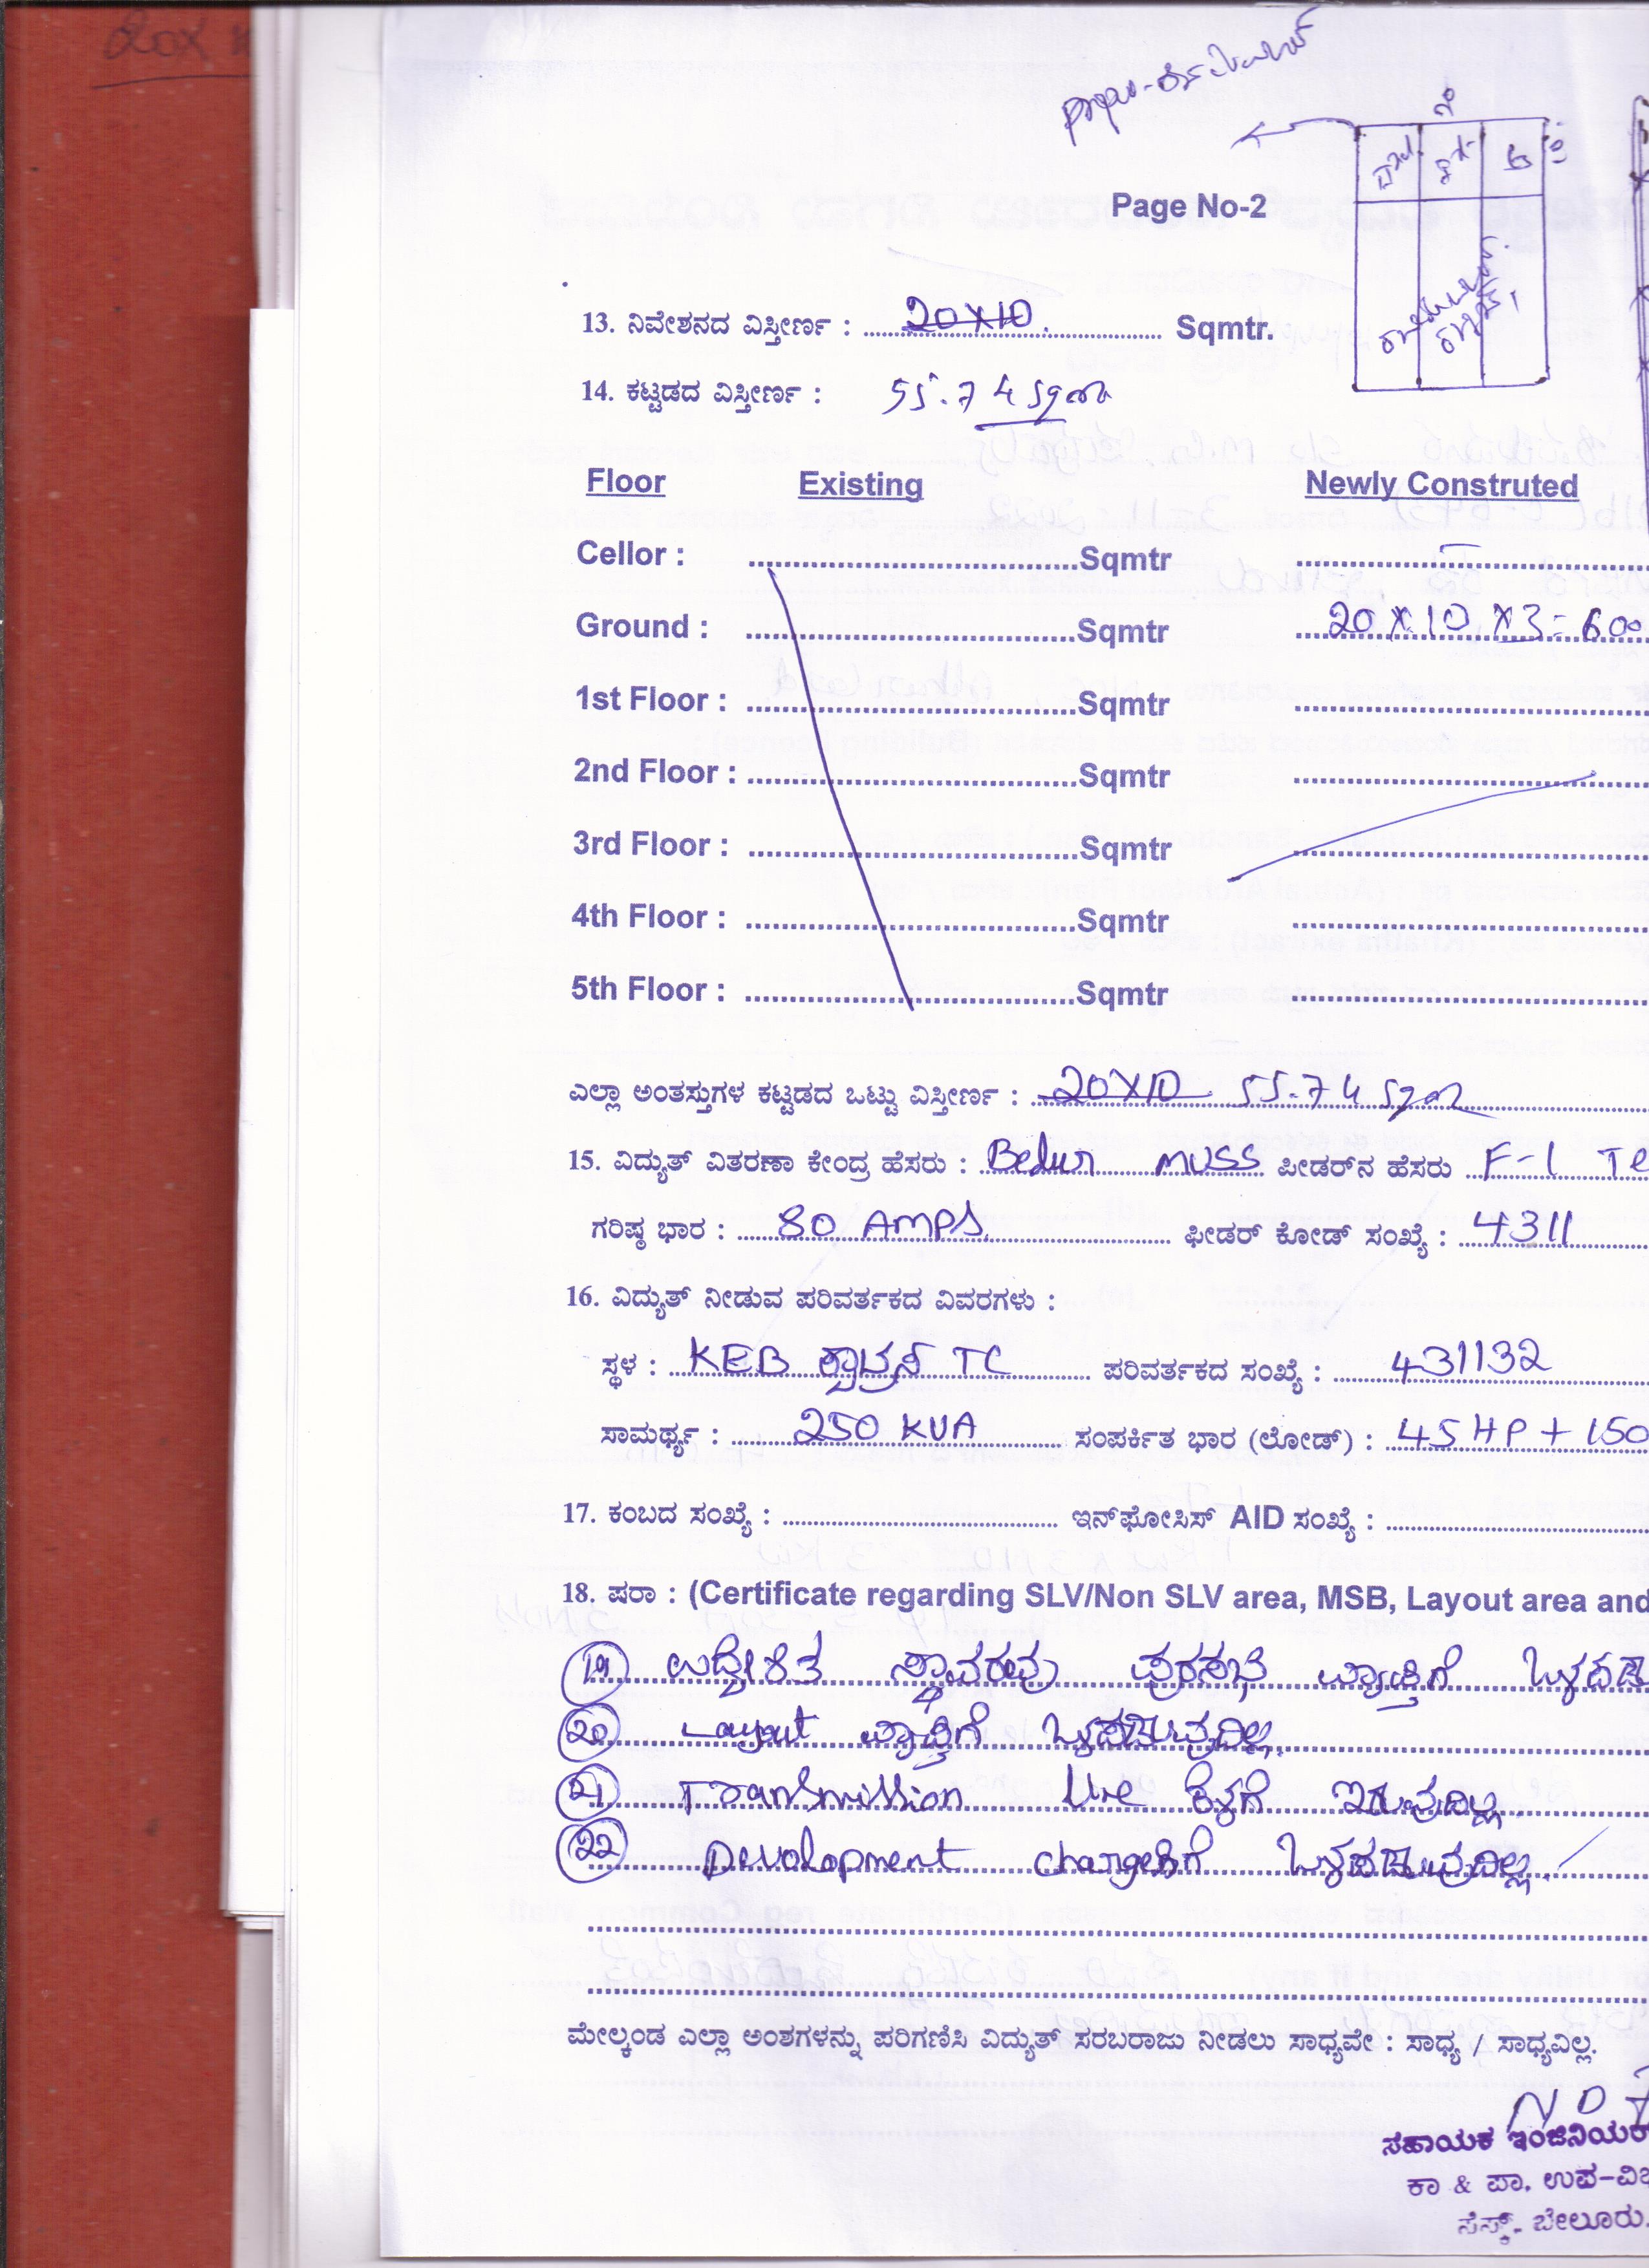 Page No-2
13. ನಿವೇಶನದ ವಿಸ್ತೀರ್ಣ : 20X10 Sqmtr.
14. ಕಟ್ಟಡದ ವಿಸ್ತೀರ್ಣ : 55.74 sqm
Floor Existing Newly Construted
Cellor : Sqmtr
Ground : Sqmtr 20 X 10 X 3 = 600
1st Floor : Sqmtr
2nd Floor : Sqmtr
3rd Floor : Sqmtr
4th Floor : Sqmtr
5th Floor : Sqmtr
ಎಲ್ಲಾ ಅಂತಸ್ತುಗಳ ಕಟ್ಟಡದ ಒಟ್ಟು ವಿಸ್ತೀರ್ಣ : 20X10 55.74 sqm
15. ವಿದ್ಯುತ್ ವಿತರಣಾ ಕೇಂದ್ರ ಹೆಸರು : Belur MUSS ಪೀಡರ್‌ನ ಹೆಸರು F-1 Te
ಗರಿಷ್ಠ ಭಾರ : 80 AMPS ಫೀಡರ್ ಕೋಡ್ ಸಂಖ್ಯೆ : 4311
16. ವಿದ್ಯುತ್ ನೀಡುವ ಪರಿವರ್ತಕದ ವಿವರಗಳು :
ಸ್ಥಳ : KEB ಕ್ವಾಟ್ರಸ್ TC ಪರಿವರ್ತಕದ ಸಂಖ್ಯೆ : 431132
ಸಾಮರ್ಥ್ಯ : 250 KVA ಸಂಪರ್ಕಿತ ಭಾರ (ಲೋಡ್) : 45 HP + 150
17. ಕಂಬದ ಸಂಖ್ಯೆ : ಇನ್‌ಫೋಸಿಸ್ AID ಸಂಖ್ಯೆ :
18. ಷರಾ : (Certificate regarding SLV/Non SLV area, MSB, Layout area and
19 ಉದ್ದೇಶಿತ ಸ್ಥಾವರವು ಪುರಸಭೆ ವ್ಯಾಪ್ತಿಗೆ ಒಳಪಡು
20 Layout ವ್ಯಾಪ್ತಿಗೆ ಒಳಪಡುವುದಿಲ್ಲ.
21 Transmission line ಕೆಳಗೆ ಇರುವುದಿಲ್ಲ.
22 Development chargesಗೆ ಒಳಪಡುವುದಿಲ್ಲ.
ಮೇಲ್ಕಂಡ ಎಲ್ಲಾ ಅಂಶಗಳನ್ನು ಪರಿಗಣಿಸಿ ವಿದ್ಯುತ್ ಸರಬರಾಜು ನೀಡಲು ಸಾಧ್ಯವೇ : ಸಾಧ್ಯ / ಸಾಧ್ಯವಿಲ್ಲ.
ಸಹಾಯಕ ಇಂಜಿನಿಯರ್
ಕಾ & ಪಾ. ಉಪ-ವಿಭ
ಸೆಸ್ಕ್. ಬೇಲೂರು.